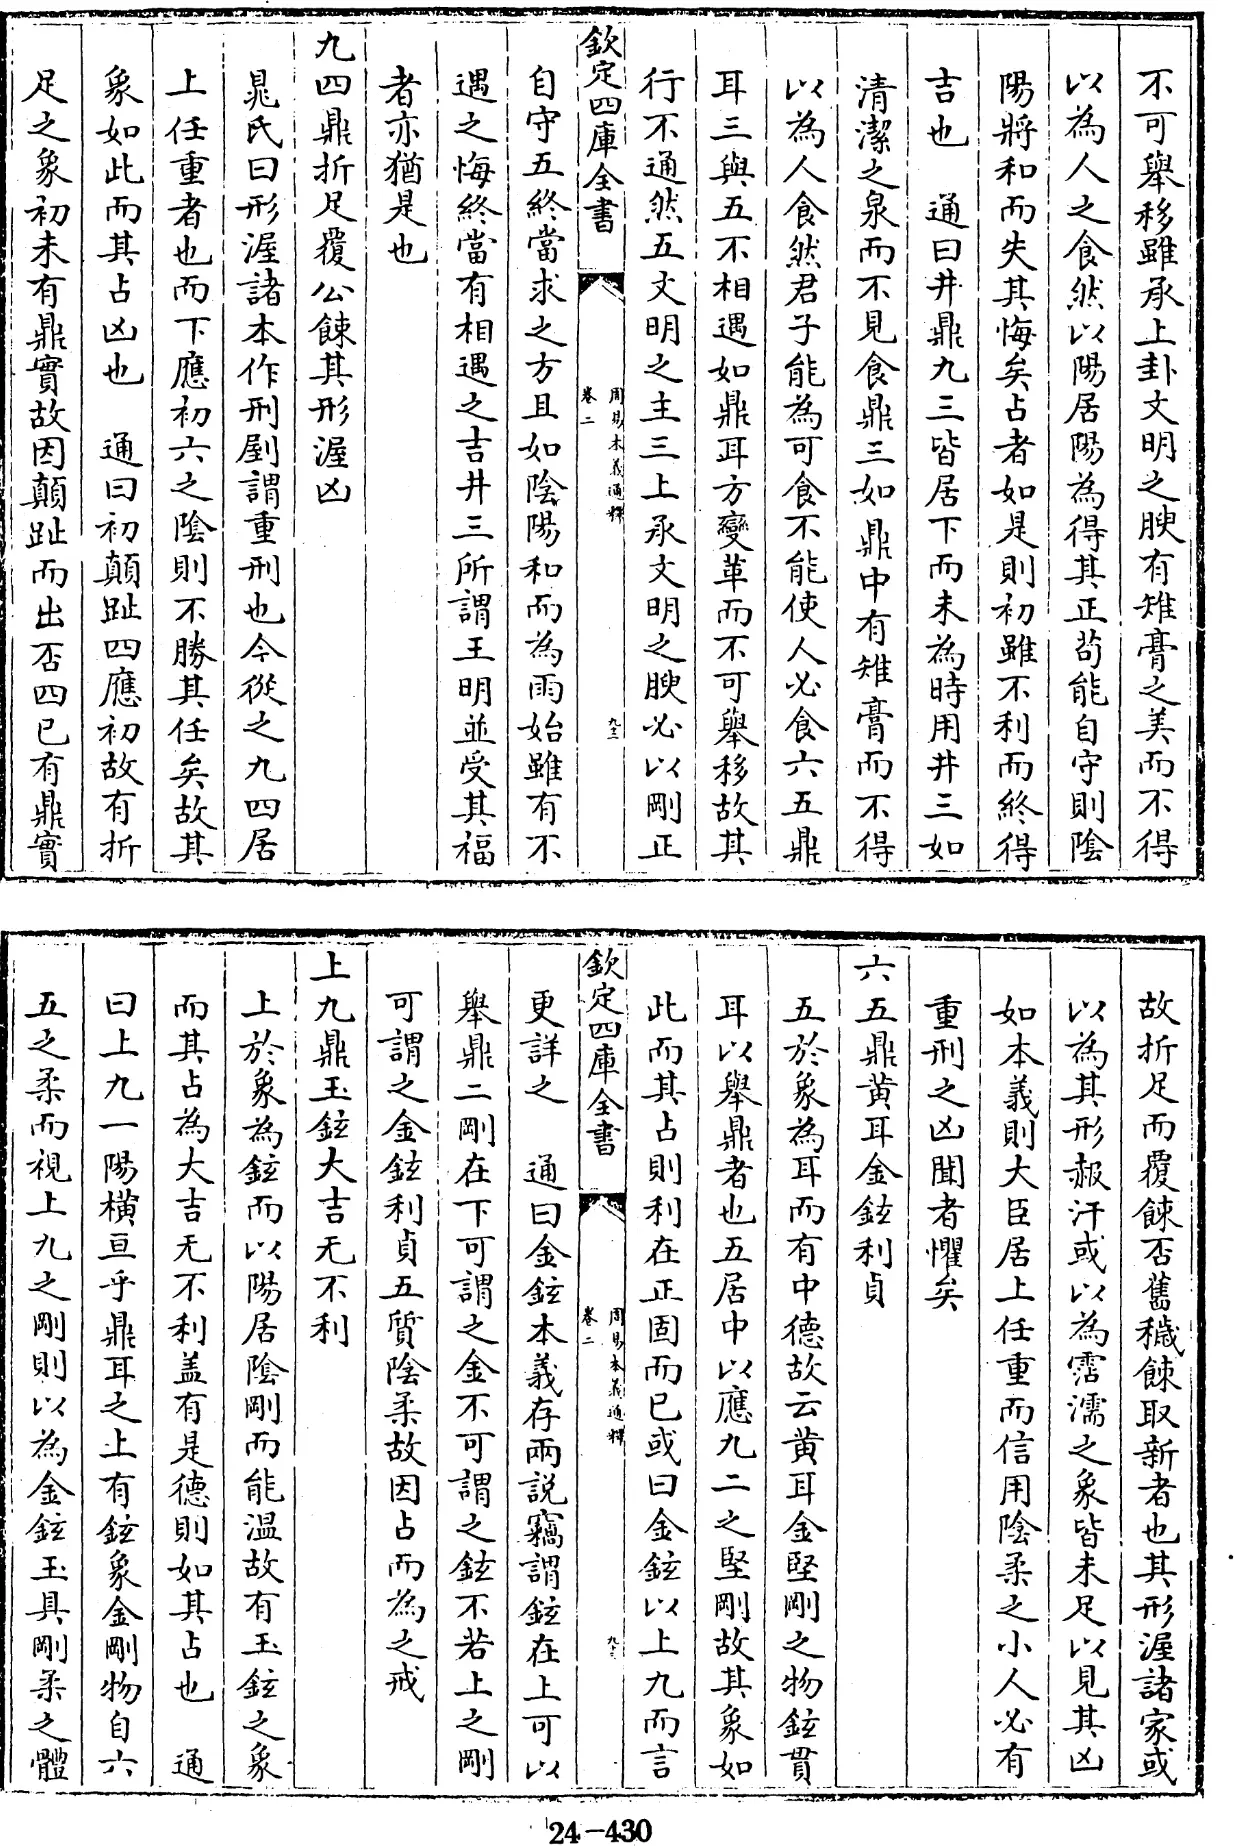 不可舉移雖承上卦文明之腴有雉膏之美而不得
以為人之食然以陽居陽為得其正苟能自守則陰
陽將和而失其悔矣占者如是則初雖不利而終得
吉也　通曰井鼎九三皆居下而未為時用井三如
清潔之泉而不見食鼎三如鼎中有雉膏而不得
以為人食然君子能為可食不能使人必食六五鼎
耳三與五不相遇如鼎耳方變革而不可舉移故其
行不通然五文明之主三上承文明之腴必以剛正
欽定四庫全書
周易本義通釋
卷二
九三
自守五終當求之方且如陰陽和而為雨始雖有不
遇之悔終當有相遇之吉井三所謂王明並受其福
者亦猶是也
九四鼎折足覆公餗其形渥凶
晁氏曰形渥諸本作刑剭謂重刑也今從之九四居
上任重者也而下應初六之陰則不勝其任矣故其
象如此而其占凶也　通曰初顛趾四應初故有折
足之象初未有鼎實故因顛趾而出否四已有鼎實
故折足而覆餗否舊穢餗取新者也其形渥諸家或
以為其形赧汗或以為霑濡之象皆未足以見其凶
如本義則大臣居上任重而信用陰柔之小人必有
重刑之凶聞者懼矣
六五鼎黄耳金鉉利貞
五於象為耳而有中德故云黄耳金堅剛之物鉉貫
耳以舉鼎者也五居中以應九二之堅剛故其象如
此而其占則利在正固而已或曰金鉉以上九而言
欽定四庫全書
周易本義通釋
卷二
更詳之　通曰金鉉本義存兩説竊謂鉉在上可以
舉鼎二剛在下可謂之金不可謂之鉉不若上之剛
可謂之金鉉利貞五質陰柔故因占而為之戒
上九鼎玉鉉大吉无不利
上於象為鉉而以陽居陰剛而能温故有玉鉉之象
而其占為大吉无不利盖有是德則如其占也　通
曰上九一陽横亘乎鼎耳之上有鉉象金剛物自六
五之柔而視上九之剛則以為金鉉玉具剛柔之體
24-430